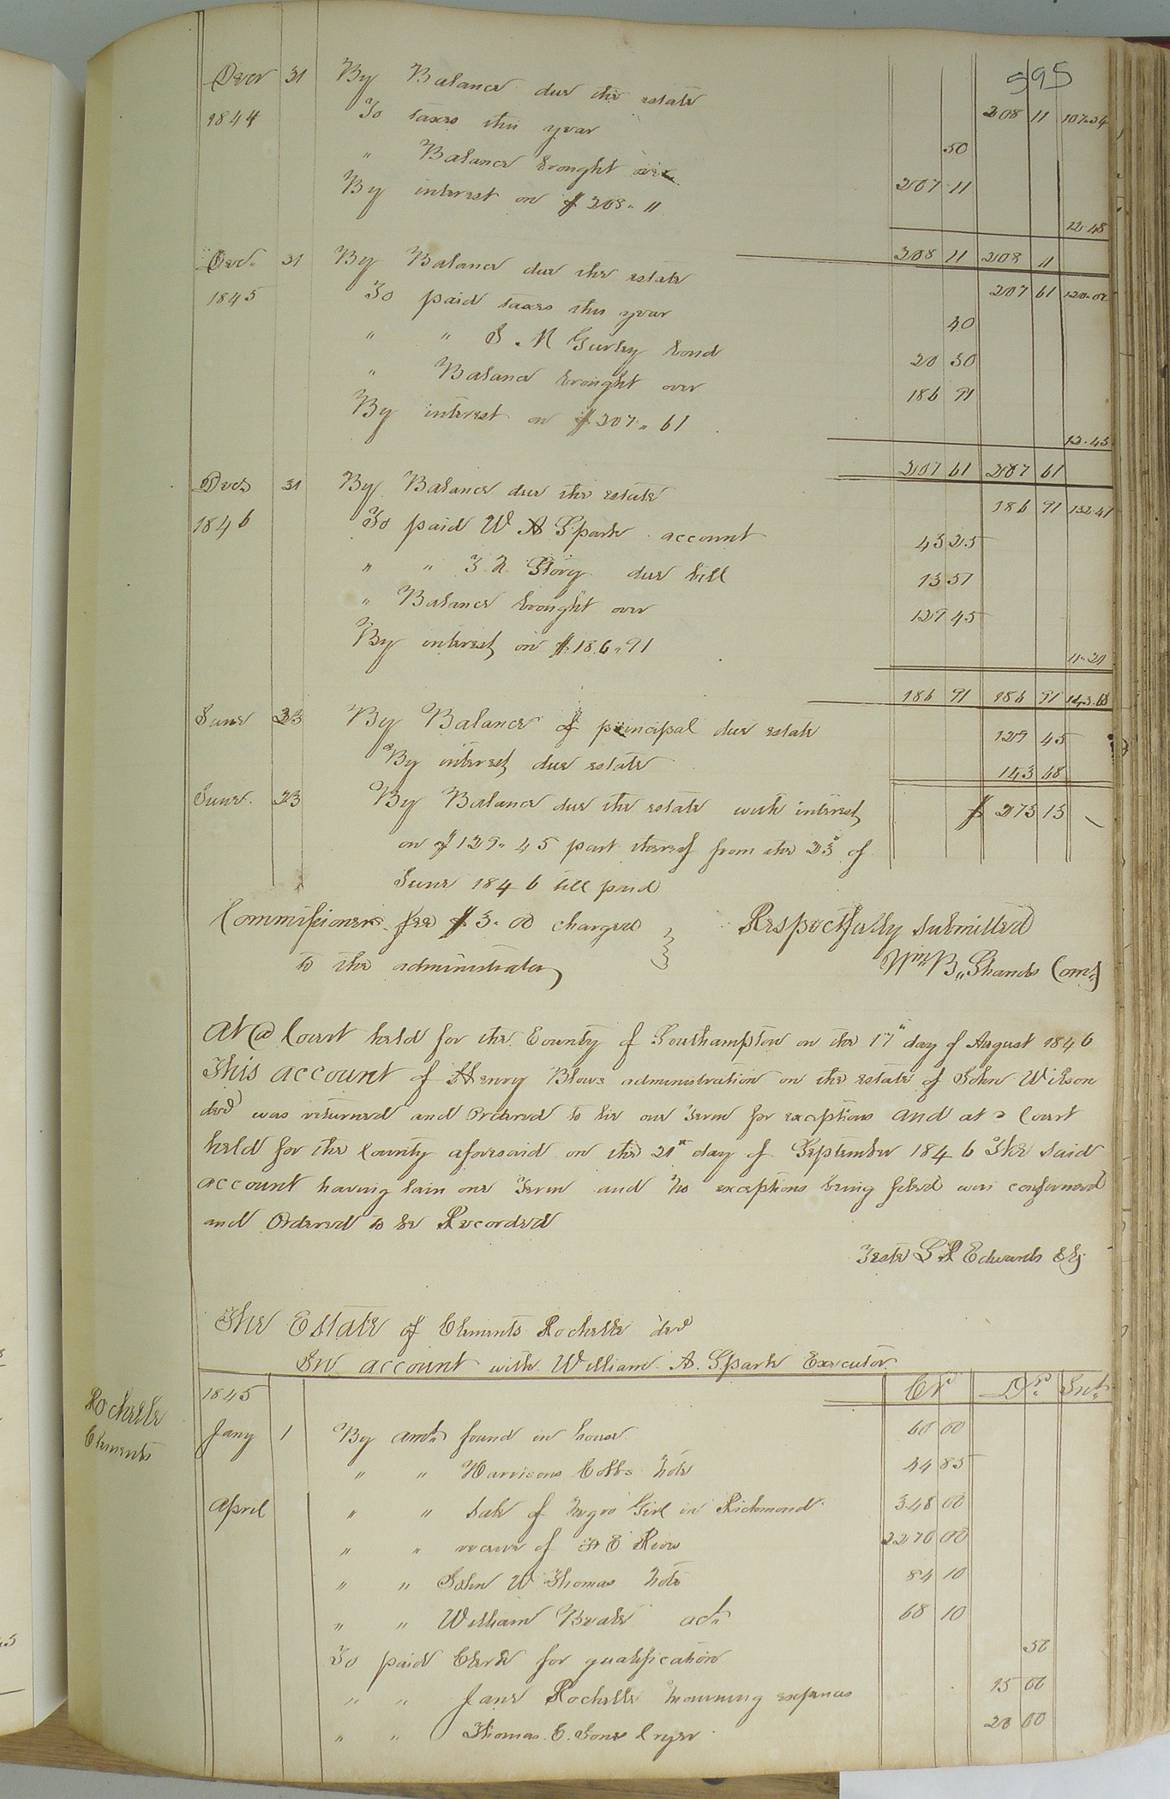 595
Decr 31 By Balance due the estate 208 11 107.54
1844 To taxes this year 50
" Balance brought over 207 11
By interest on $208.11 12.48
208 11 208 11
Decr 31 By Balance due the estate 207 61 120.02
1845 To paid taxes this year 40
" " S. N Gurley bond 20 30
" Balance brought over 186 91
By interest on $207.61 12.45
207 61 207 61
Decr 31 By Balance due the estate 186 91 132.47
1846 To paid W A Spark account 43 25
" " due bill 13 51
" Balance brought over 129 45
By interest on $186.91 11.21
186 91 186 91 143.68
June 23 By Balance of principal due estate 129 45
By interest due estate 143 68
June 23 By Balance due the estate with interest $ 273 13
on $129.45 part thereof from the 23d of
June 1846 till paid
Commissioners fee $3.00 charged Respectfully submitted
to the administrator Wm B. Shands Comr
At a Court held for the County of Southampton on the 17th day of August 1846
This account of Henry Blows administration on the estate of John Wilson
decd was returned and Ordered to lie one Term for exceptions and at a Court
held for the County aforesaid on the 21st day of September 1846 The said
account having lain one Term and no exceptions being filed was confirmed
and Ordered to be Recorded
Teste L R Edwards Clk
The Estate of Clements Rochelle decd
In account with William A. Spark Executor
1845 Cr Dr Int
Rochelle
Clements
Jany 1 By amt found in house 60 00
" " Harrisons Cobbs Note 44 85
April " " sale of Negro Girl in Richmond 348 00
" " receivd of E Rivs 2270 00
" " John W Thomas Note 84 10
" " William Beale act 68 10
To paid Clerk for qualification 50
" " Jane Rochelle mourning expences 15 00
" " Thomas C. Jones Cryer 20 00